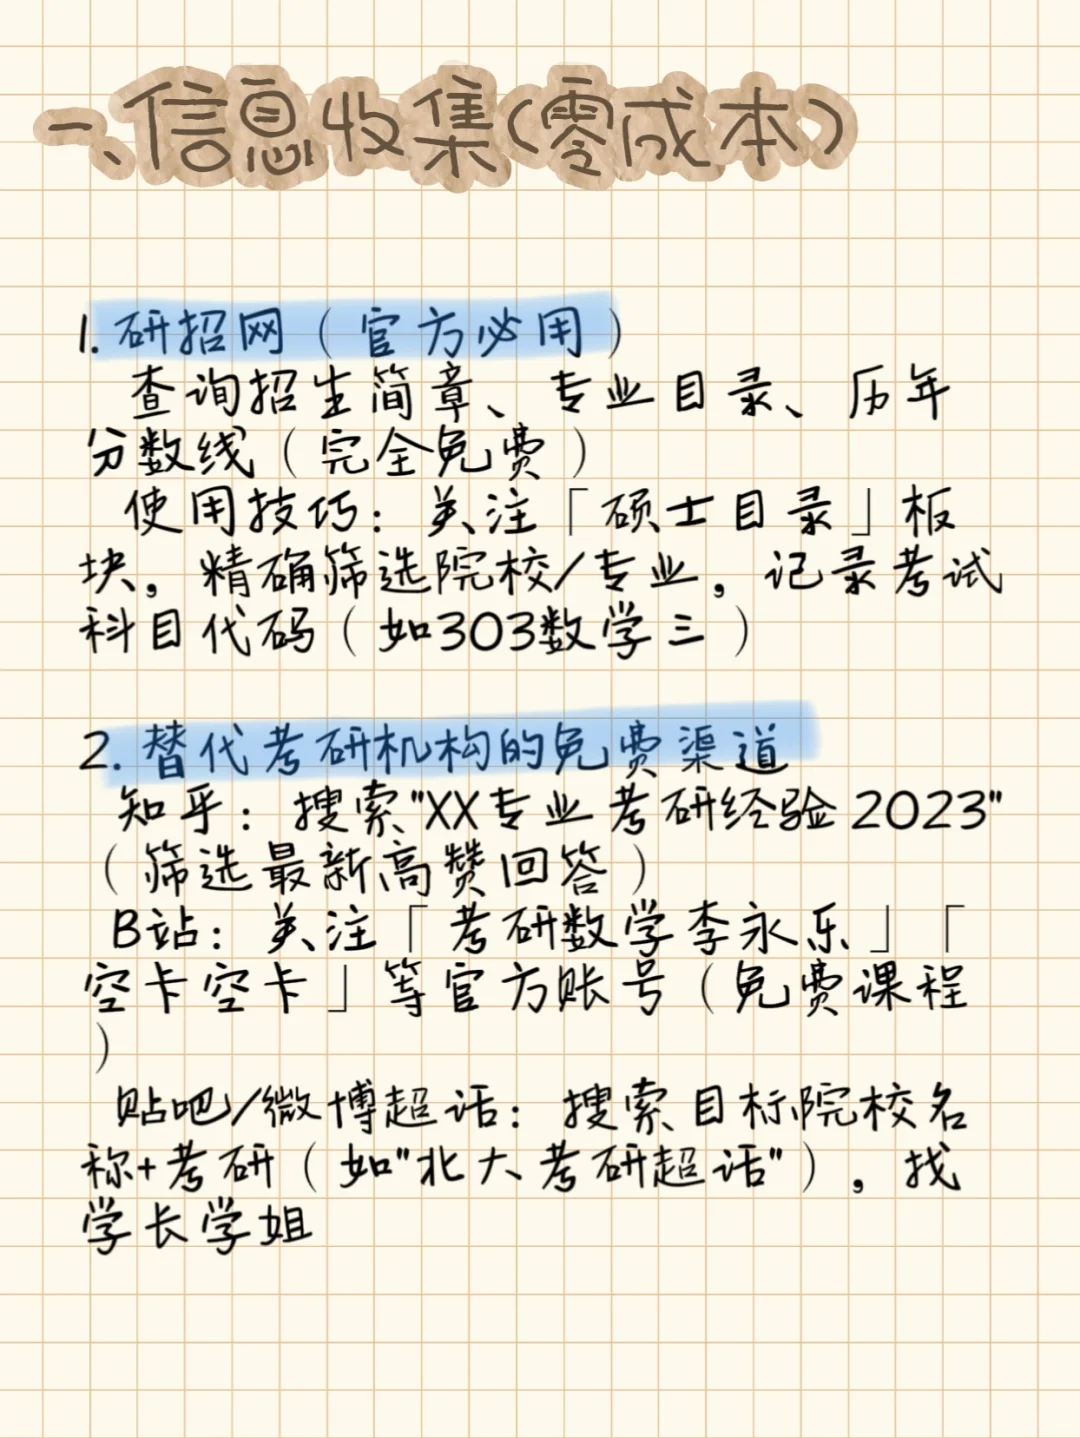 一、信息收集(零成本)
1. 研招网（官方必用）
查询招生简章、专业目录、历年
分数线（完全免费）
使用技巧：关注「硕士目录」板
块，精确筛选院校/专业，记录考试
科目代码（如303数学三）
2. 替代考研机构的免费渠道
知乎：搜索"XX专业考研经验2023"
（筛选最新高赞回答）
B站：关注「考研数学李永乐」「
空卡空卡」等官方账号（免费课程
）
贴吧/微博超话：搜索目标院校名
称+考研（如"北大考研超话"），找
学长学姐